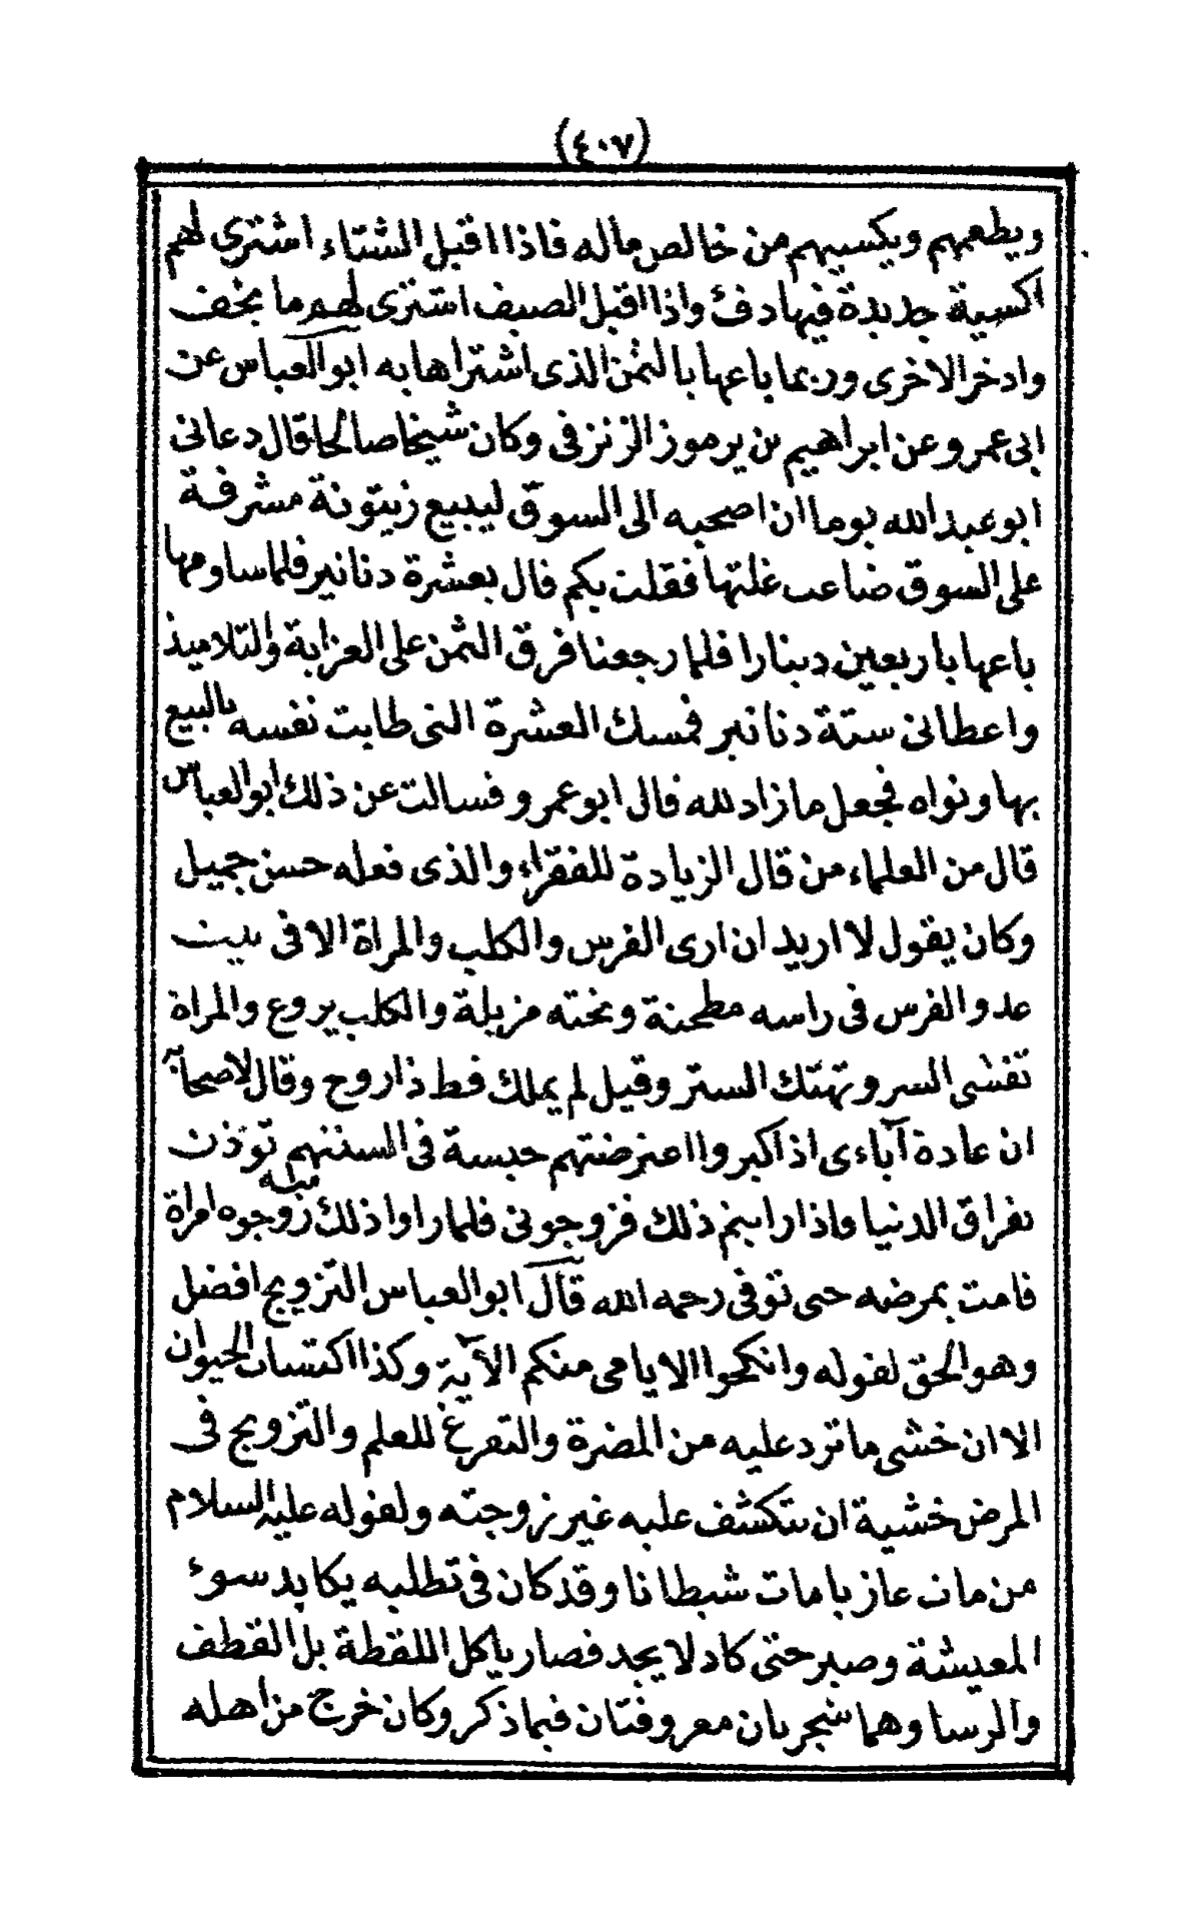 (٤٠٧)
ويطعمهم ويكسيهم من خالص ماله فاذا اقبل الشتاء اشترى لهم
اكسية جديدة فيها دفئ واذا اقبل الصيف اشترى لهم ما يخف
وادخر الاخرى وربما باعها بالثمن الذى اشتراها به ابو العباس عن
ابى عمرو عن ابراهيم بن يرموز الزنزفى وكان شيخا صالحا قال دعانى
ابو عبد الله يوما ان اصحبه الى السوق ليبيع زيتونة مشرفة
على السوق ضاعت غلتها فقلت بكم قال بعشرة دنانير فلما ساومها
باعها باربعين دينارا فلما رجعنا فرق الثمن على العزابة والتلاميذ
واعطانى ستة دنانير فمسك العشرة التى طابت نفسه بالبيع
بها ونواه فجعل ما زاد لله قال ابو عمرو فسالت عن ذلك ابو العباس
قال من العلماء من قال الزيادة للفقراء والذى فعله حسن جميل
وكان يقول لا اريد ان ارى الفرس والكلب والمراة الا فى بيت
عدو الفرس فى راسه مطحنة وتحته مزبلة والكلب يروع والمراة
تفشى السر وتهتك الستر وقيل لم يملك قط ذا روح وقال لاصحابه
ان عادة آباءى اذا كبروا اعترضتهم حبسة فى السنتهم توذن
بفراق الدنيا واذا رايتم ذلك فزوجونى فلما راوا ذلك منه زوجوه امراة
قامت بمرضه حتى توفى رحمه الله قال ابو العباس التزويج افضل
وهو الحق لقوله وانكحوا الايامى منكم الآية وكذا اكتساب الحيوان
الا ان خشى ما ترد عليه من المضرة والتفرغ للعلم والتزويج فى
المرض خشية ان تتكشف عليه غير زوجته ولقوله عليه السلام
من مات عازبا مات شيطانا وقد كان فى تطلبه يكابد سوء
المعيشة وصبر حتى كاد لا يجد فصار ياكل اللقطة بل القطف
والرسا وهما شجرتان معروفتان فيما ذكر وكان خرج من اهله